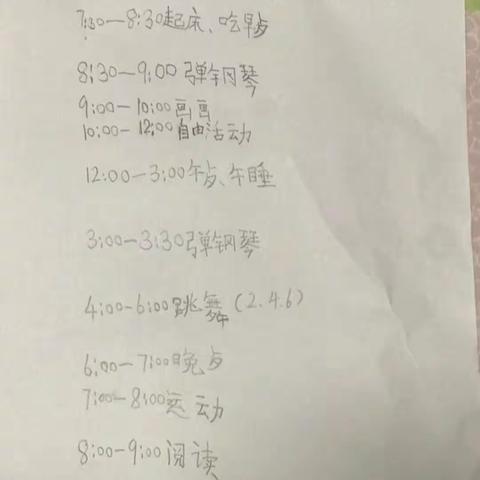 7:30—8:30起床、吃早点
8:30—9:00弹钢琴
9:00—10:00画画
10:00—12:00自由活动
12:00—3:00午点、午睡
3:00—3:30弹钢琴
4:00—6:00跳舞(2.4.6)
6:00—7:00晚点
7:00—8:00运动
8:00—9:00阅读